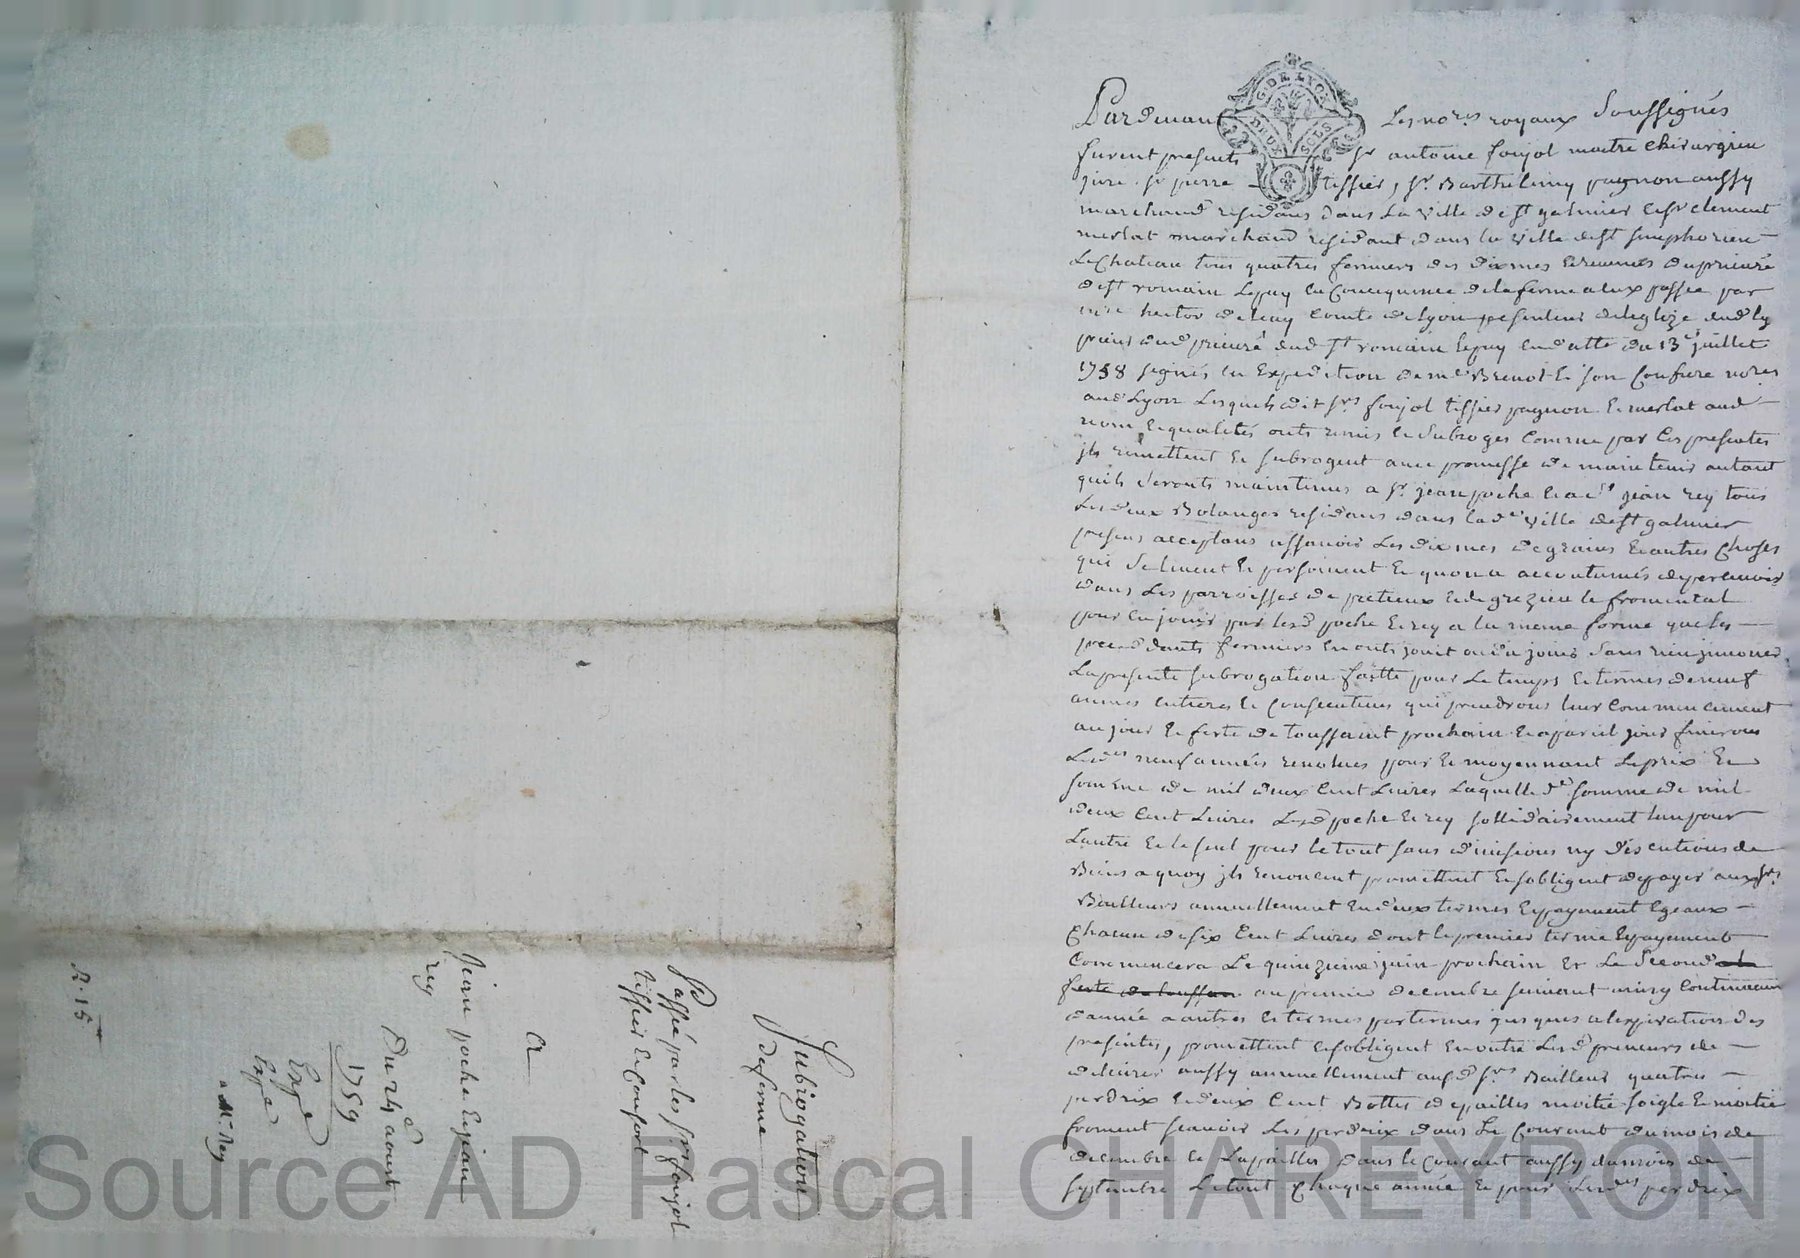 Pardevant Les no.res royaux soussignés
furent presents sr antoine foujol maitre chirurgien
juré sr pierre tissier, sr. Barthelemy pagnon aussy
marchand residans dans La ville de st galmier et sr clement
merlat marchand residant dans la ville de st simphorien
Le Chateau tous quatres fermiers des dixmes et revenus du prieuré
de st romain Lepuy en Consequence de la ferme a eux passée par
hector de Comte de Lyon de leglize dud Ly
prieur dud prieuré dud st romain lepuy en datte du 13e juillet
1758 signés en Expedition de me Brenot & son Confrere no.res
aud Lyon Lesquels dit srs foujol tissier pagnon & merlat aud
nom & qualités onts remis & subroges comme par les presentes
jls remettent & subrogent avec promesse de maintenir autant
quils seronts maintenus a sr. jean poche & a sr jean rey tous
Les deux Bolanger residans dans lade ville de st galmier
presens acceptans assavoir Les dixmes de grains & autres choses
qui se levent & persoivent & quon a accoutumés de percevoir
dans Les parroisses de pretieux & de grezieu le fromental
pour en jouir par lesd poche & rey a la meme forme que les
precedants fermiers en onts jouit ou du jouir sans rien jnnover
La presente subrogation faitte pour Le temps & termes de neuf
années entieres & Consecutives qui prendrons leur commencement
au jour & feste de toussaint prochain & a pareil jour finirons
Lesd neuf années revolues pour & moyennant Le prix &
somme de mil deux Cent Livres Laquelle de somme de mil
deux Cent Livres Lesd poche & rey sollidairement lun pour
Lautre & le seul pour le tout sans divisions ny discutions de
Biens a quoy jls renoncent promettent & sobligent de payer aux srs
Bailleurs annuellement en deux termes & payement egeaux
Chacun de six Cent Livres dont le premier terme & payement
Commencera Le quinzieme juin prochain Et Le Second
feste de toussan au premier decembre suivant ainsy Continuer
dannée a autres & termes par termes jusques a lexpiration des
presentes, promettent & sobligent En outre Lesd preneurs de
delivrer aussy annuellement ausd srs Bailleurs quatres
perdrix & deux Cent Bottes de pailles moitié soigle & moitié
froment scavoir Les perdrix dans Le Courant du mois de
decembre & La pailles dans le Courant aussy du mois de
septembre Le tout Chaque année & pour Lesdes perdrix
Subrogation
de ferme
Passé par les srs foujol
tissier & Consort
A
Jean poche & jean
rey
Du 24e aoust
1759
Expe
Expe
a Mr. Rey
R. 15
Source AD Pascal CHAREYRON